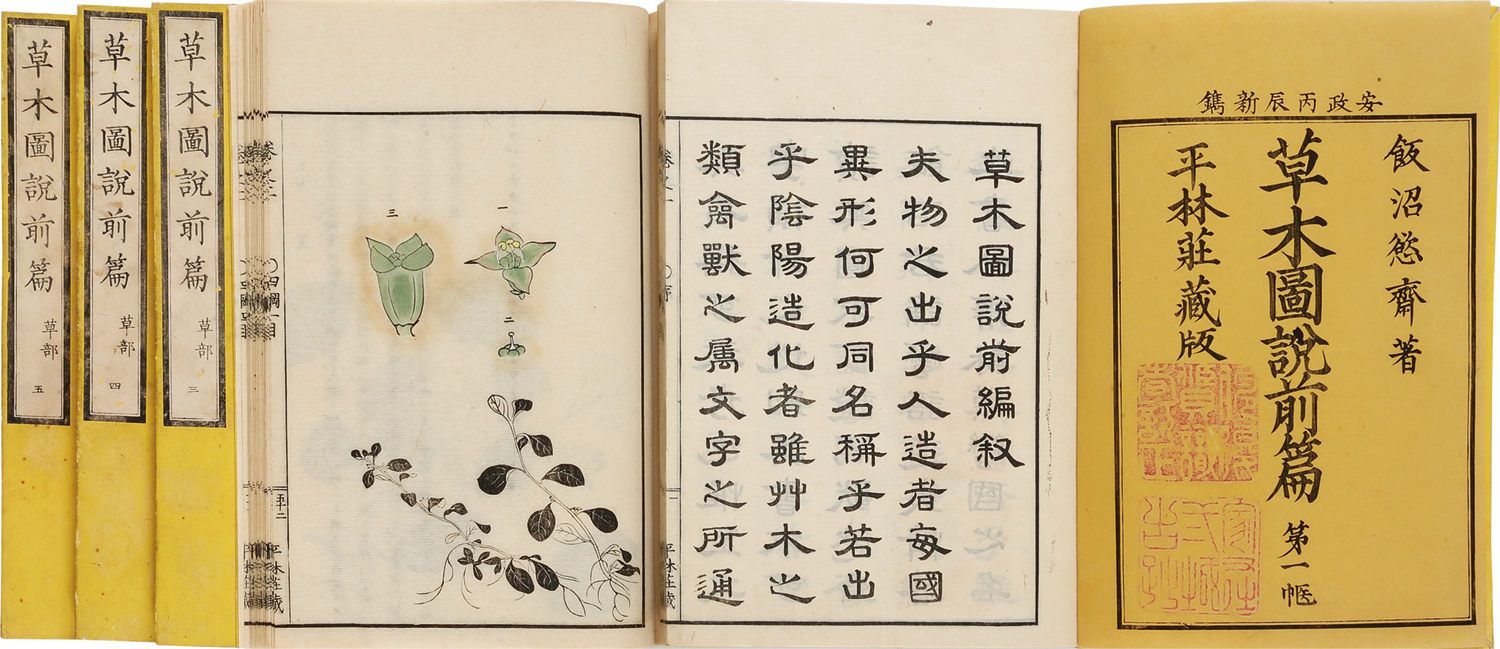 安政丙辰新鐫
飯沼慾齋著
草木圖說前篇
第一帙
平林莊藏版
草木圖說前編叙
夫物之出乎人造者每國
異形何可同名稱乎若出
乎陰陽造化者雖艸木之
類禽獸之属文字之所通
一
二
三
五十二
平林莊藏
草木圖說前篇
草部
三
草木圖說前篇
草部
四
草木圖說前篇
草部
五